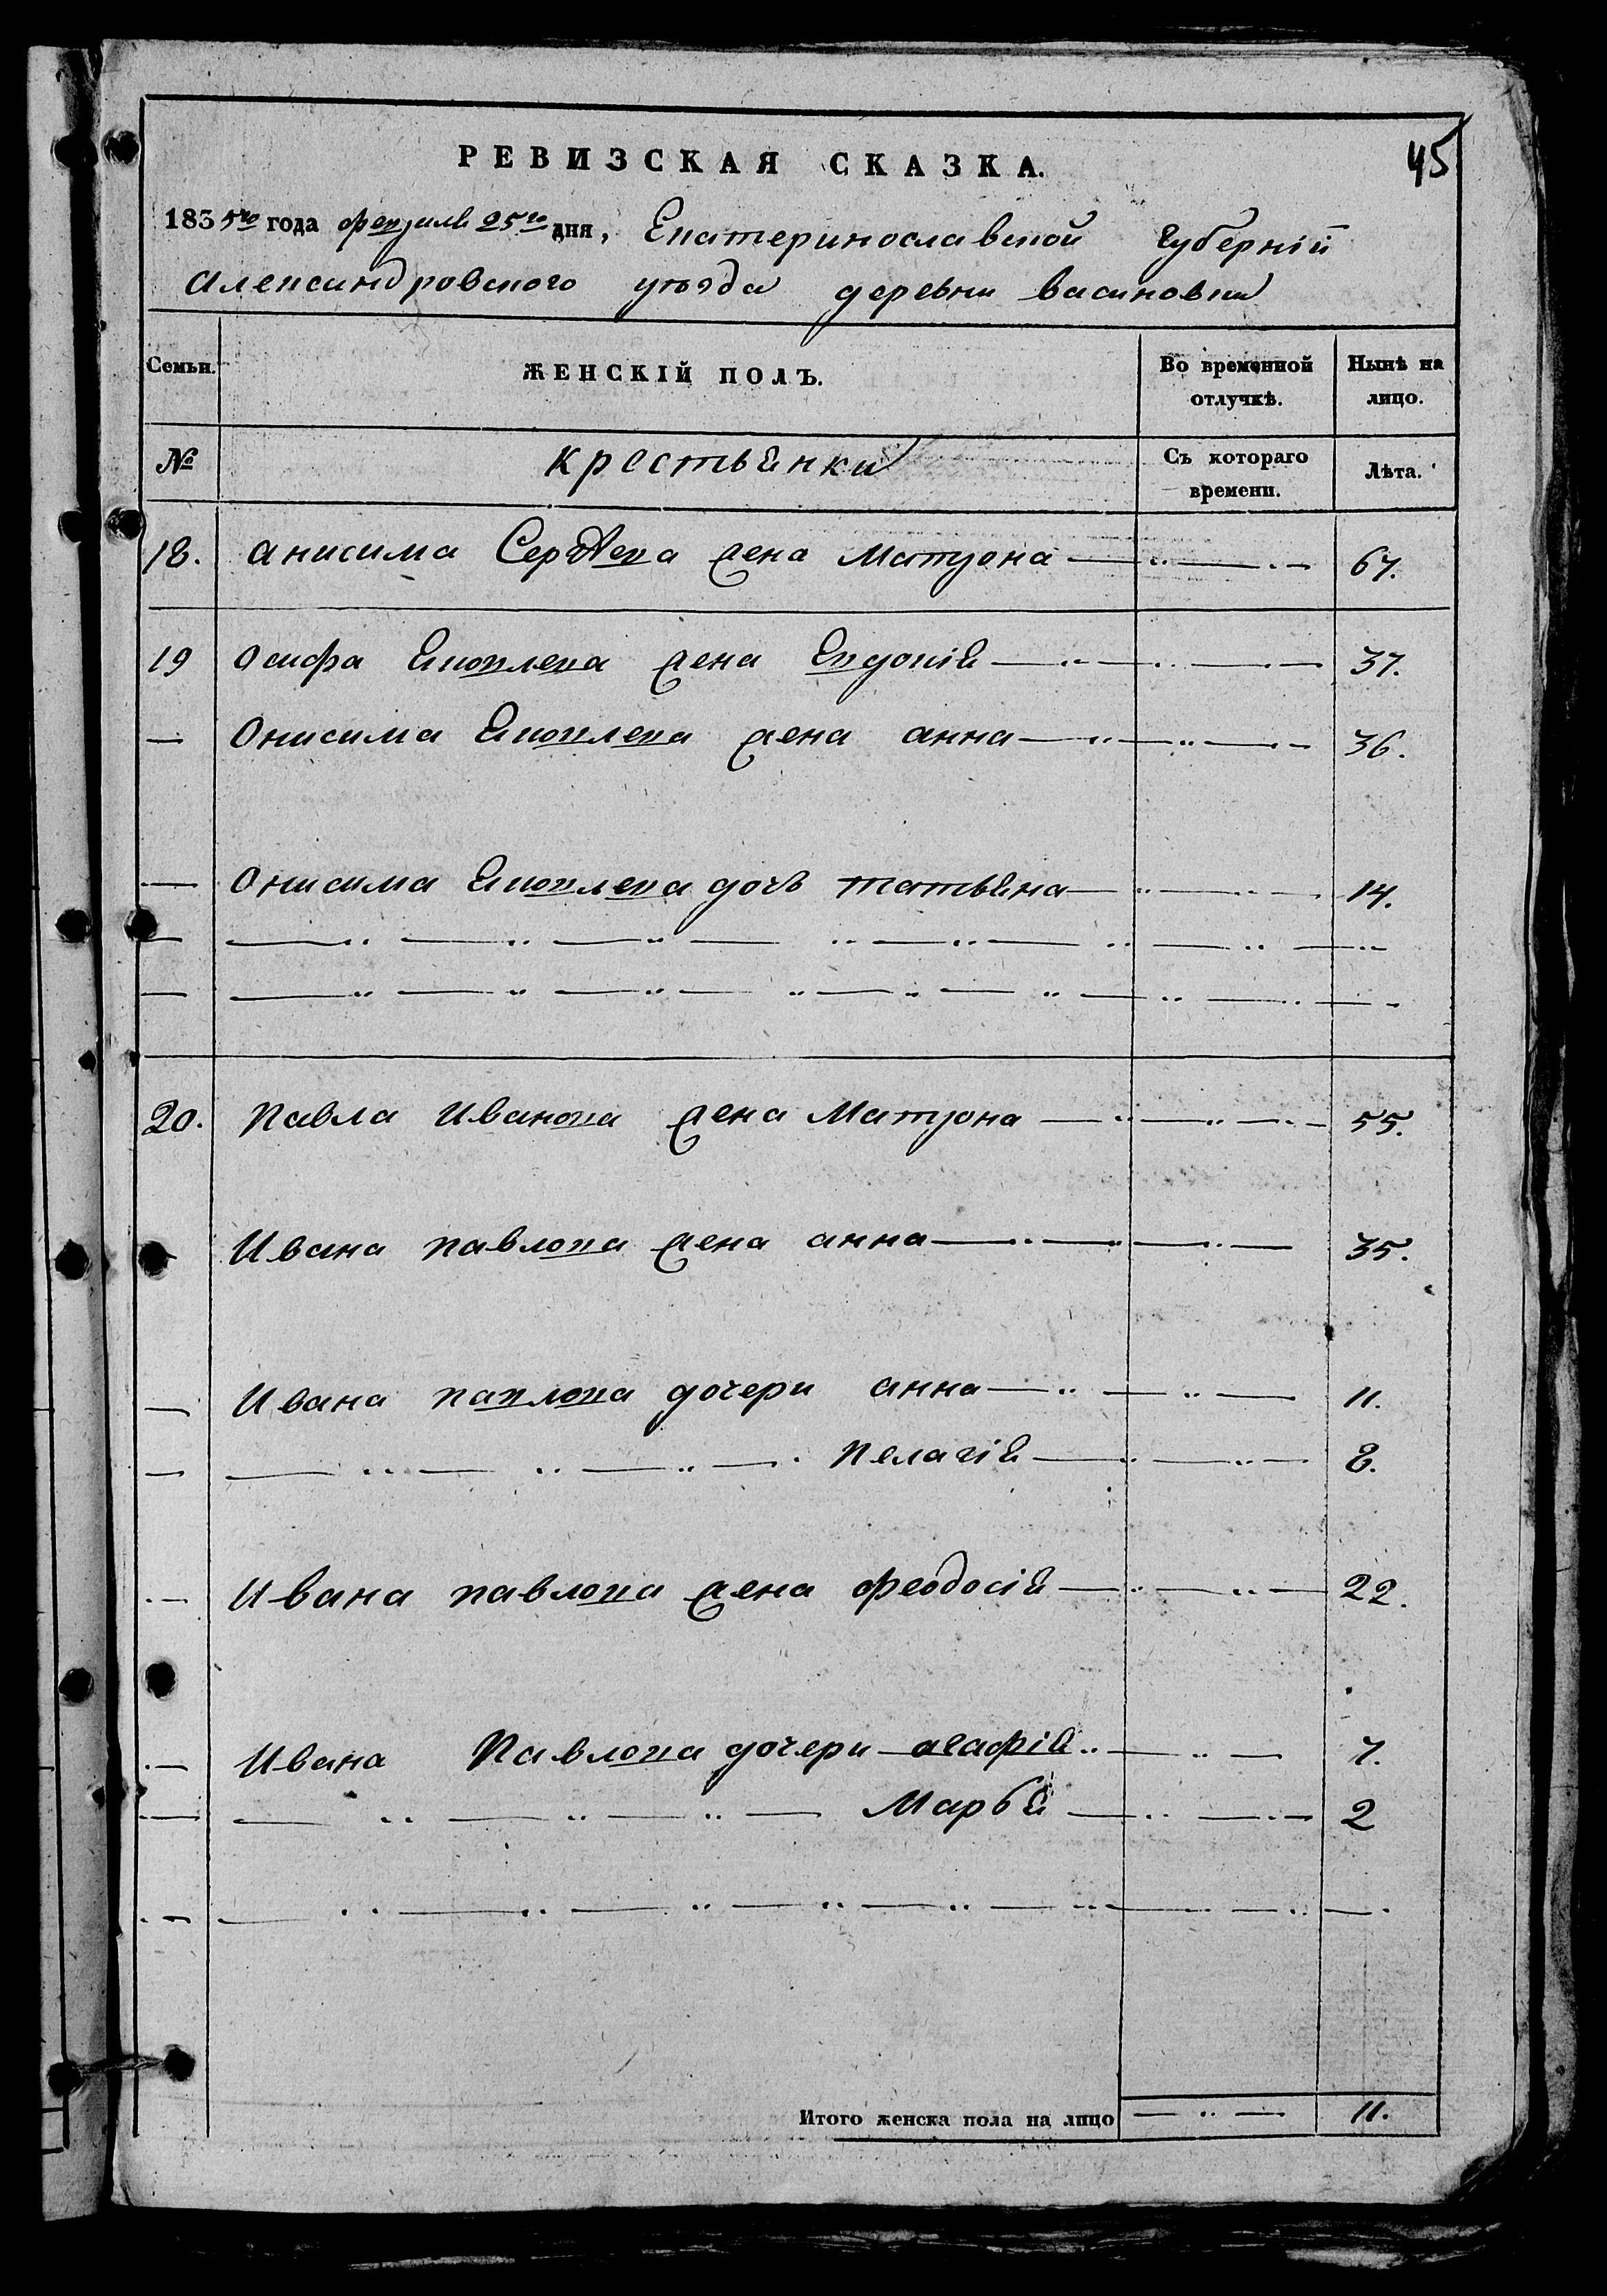 45
РЕВИЗСКАЯ СКАЗКА.
1835го года февраля 25го дня, Екатеринославской Губерніи
Александровского уезда деревни васиновки
Семьи. ЖЕНСКІЙ ПОЛЪ. Во временной отлучкѣ. Нынѣ на лицо.
№ Крестьянки Съ котораго времени. Лѣта.
18. анисима Сергѣева жена Матрона 67.
19 осифа Яковлева жена Евдокія 37.
Онисима Яковлева жена анна 36.
Онисима Яковлева дочь татьяна 14.
20. Павла Иванова жена Матрона 55.
Ивана павлова жена анна 35.
Ивана павлова дочери анна 11.
Пелагія 8.
Ивана павлова жена феодосія 22.
Ивана Павлова дочери агафія 7.
Марья 2
Итого женска пола на лицо 11.